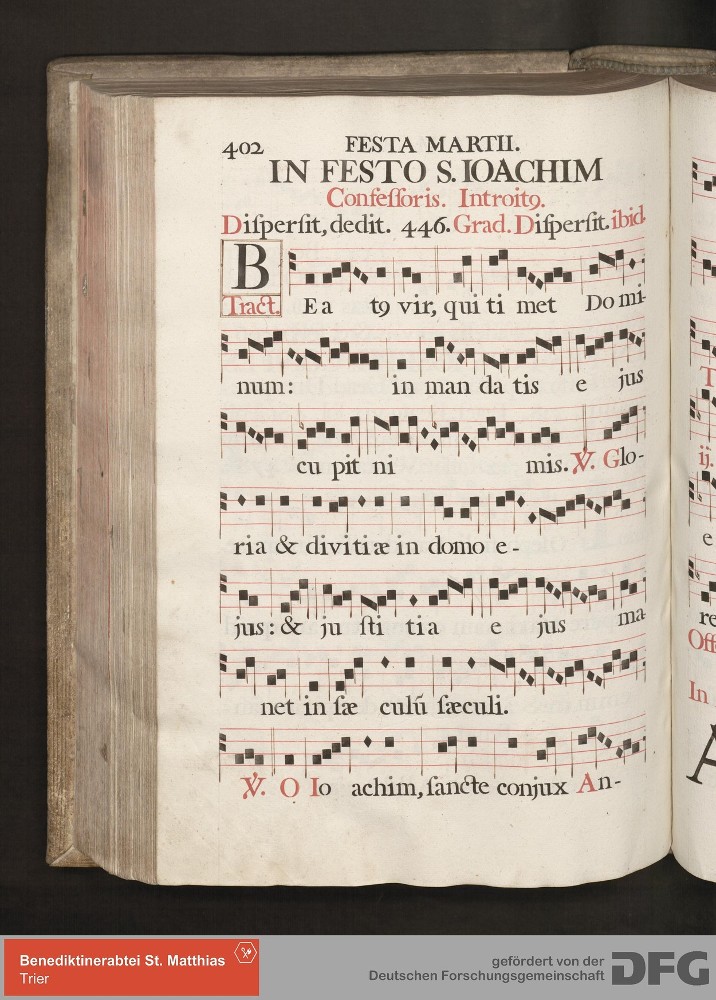 402 FESTA MARTII.
IN FESTO S. IOACHIM
Confeſſoris. Introitꝯ.
Diſperſit, dedit. 446. Grad. Diſperſit. ibid.
B
Tract. Ea tꝯ vir, qui ti met Do mi-
num: in man da tis e jus
cu pit ni mis. ℣. Glo-
ria & divitiæ in domo e-
jus: & ju ſti tia e jus ma-
net in ſæ culū ſæculi.
℣. O Io achim, ſancte conjux An-
T
ij.
e
re
Off
In
A
Benediktinerabtei St. Matthias
Trier
gefördert von der
Deutschen Forschungsgemeinschaft
DFG